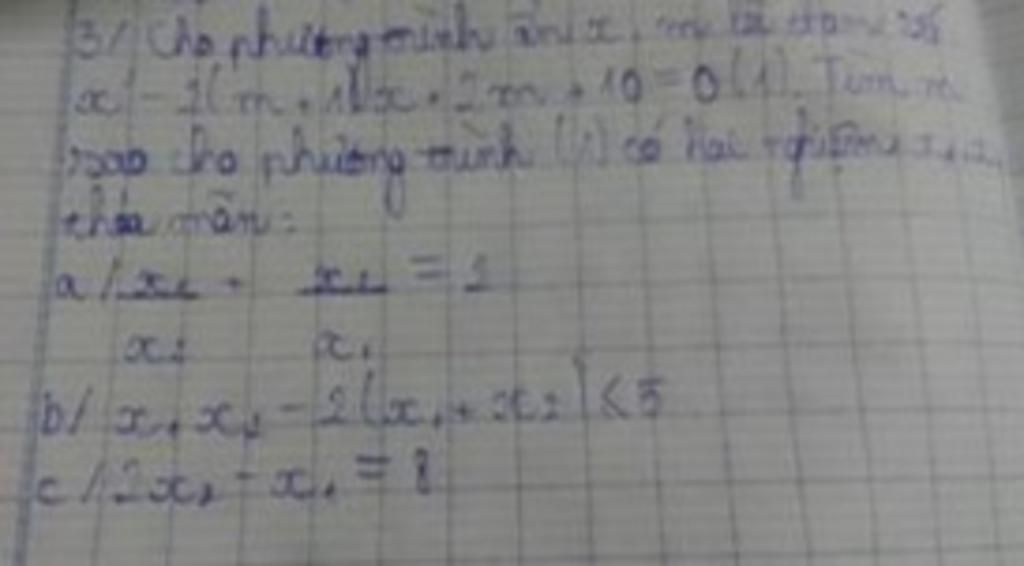 3/ Cho phương trình ẩn x, m là tham số
x² - 2(m + 1)x + 2m + 10 = 0 (1). Tìm m
sao cho phương trình (1) có hai nghiệm x₁, x₂
thỏa mãn:
a/ x₁/x₂ + x₂/x₁ = 1
b/ x₁x₂ - 2(x₁ + x₂) < 5
c/ 2x₂ - x₁ = 8